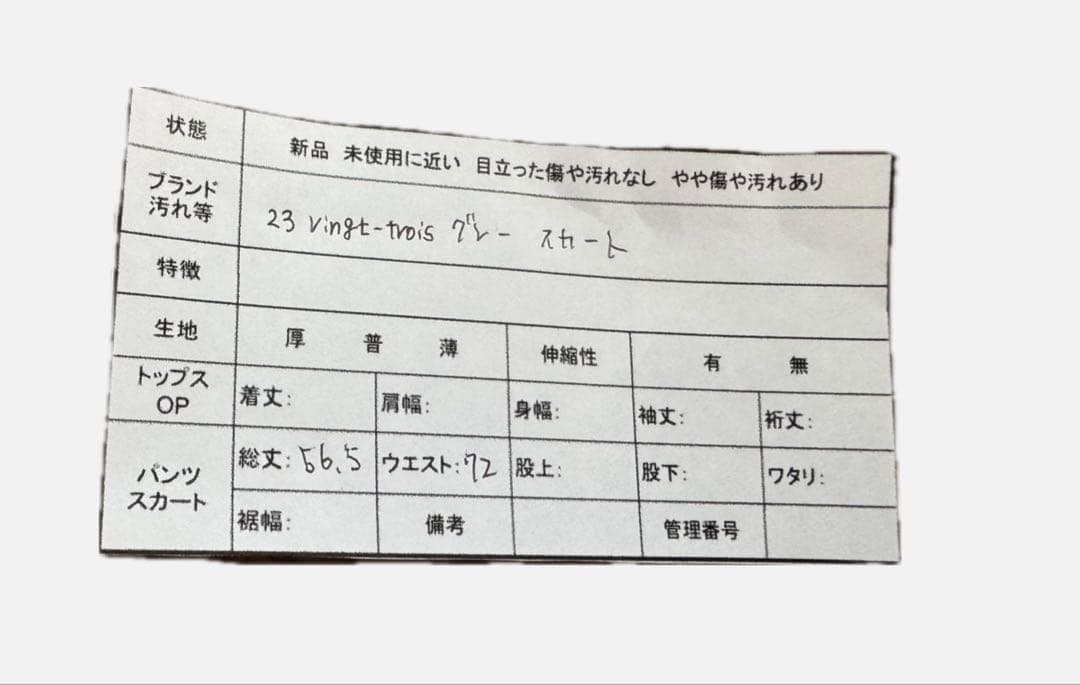 状態 新品 未使用に近い 目立った傷や汚れなし やや傷や汚れあり
ブランド
汚れ等 23 vingt-trois グレー スカート
特徴
生地 厚 普 薄 伸縮性 有 無
トップス
OP 着丈: 肩幅: 身幅: 袖丈: 裄丈:
パンツ
スカート
総丈:56.5 ウエスト:72 股上: 股下: ワタリ:
裾幅: 備考 管理番号